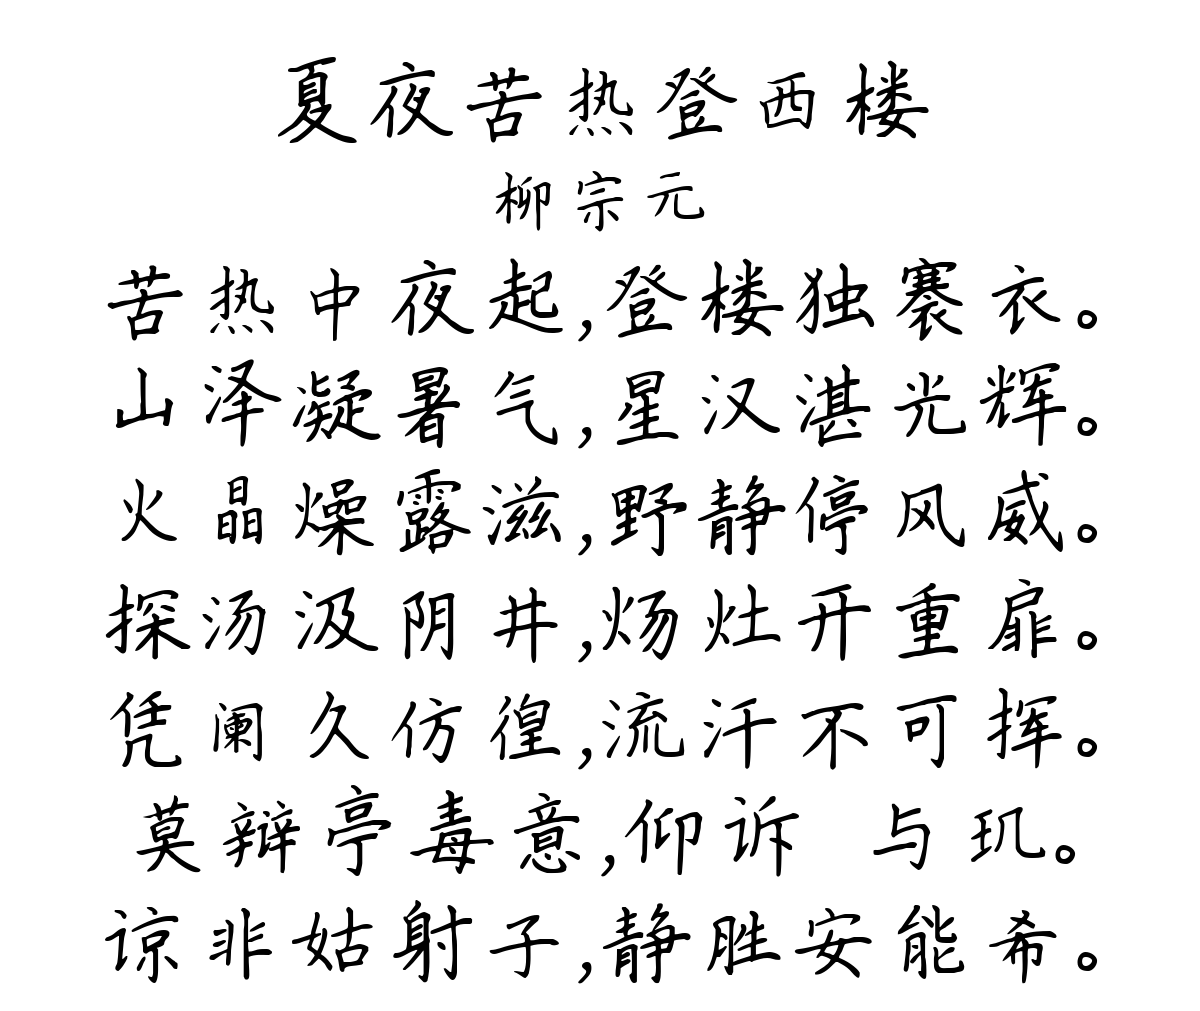 夏夜苦热登西楼
柳宗元
苦热中夜起,登楼独褰衣。
山泽凝暑气,星汉湛光辉。
火晶燥露滋,野静停风威。
探汤汲阴井,炀灶开重扉。
凭阑久仿徨,流汗不可挥。
莫辩亭毒意,仰诉 与玑。
谅非姑射子,静胜安能希。